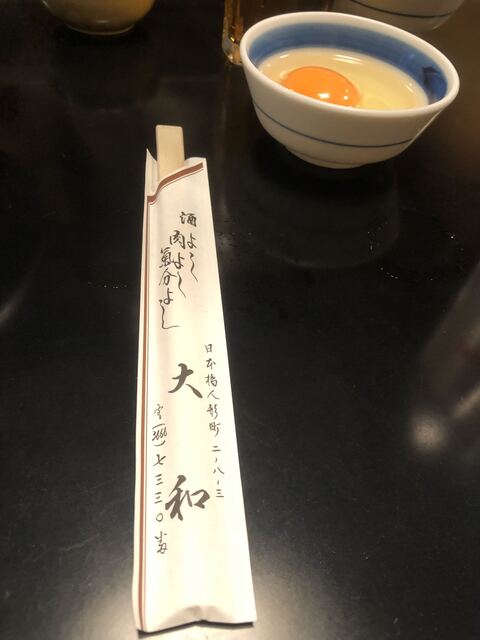 酒よし
肉よし
氣分よし
日本橋人形町二ノ八ノ三
大和
電(3666)七三三〇番